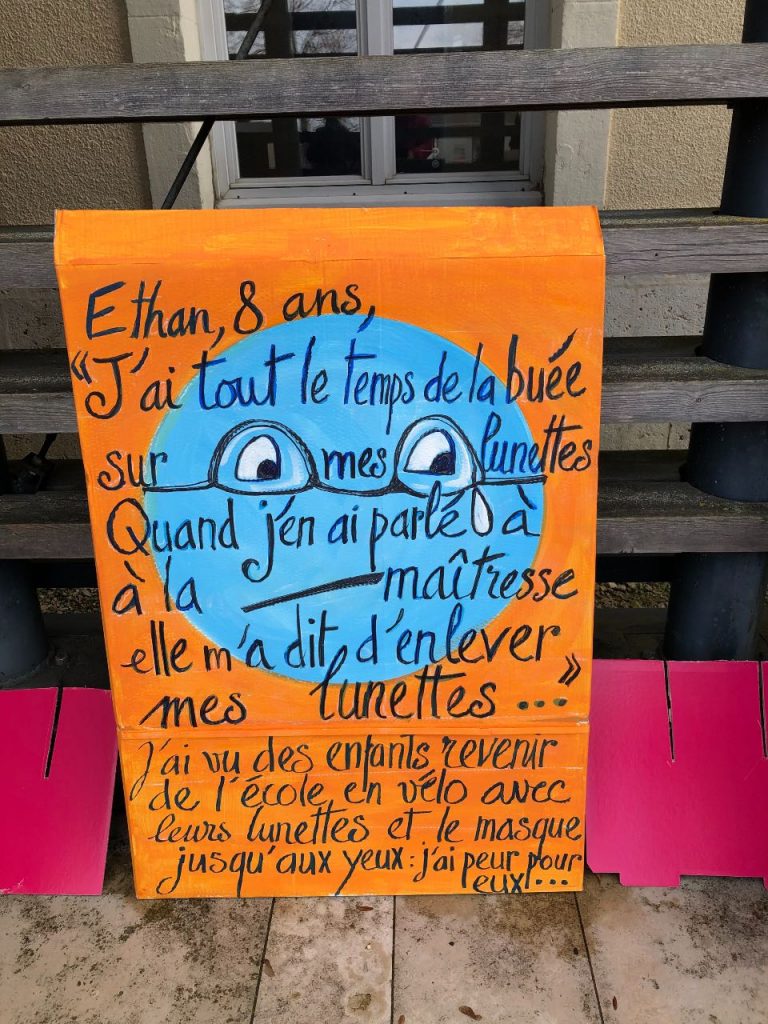 Ethan, 8 ans,
"J'ai tout le temps de la buée
sur mes lunettes
Quand j'en ai parlé à
à la maîtresse
elle m'a dit d'enlever
mes lunettes ...»
J'ai vu des enfants revenir
de l'école en vélo avec
leurs lunettes et le masque
jusqu'aux yeux : j'ai peur pour
eux! ...